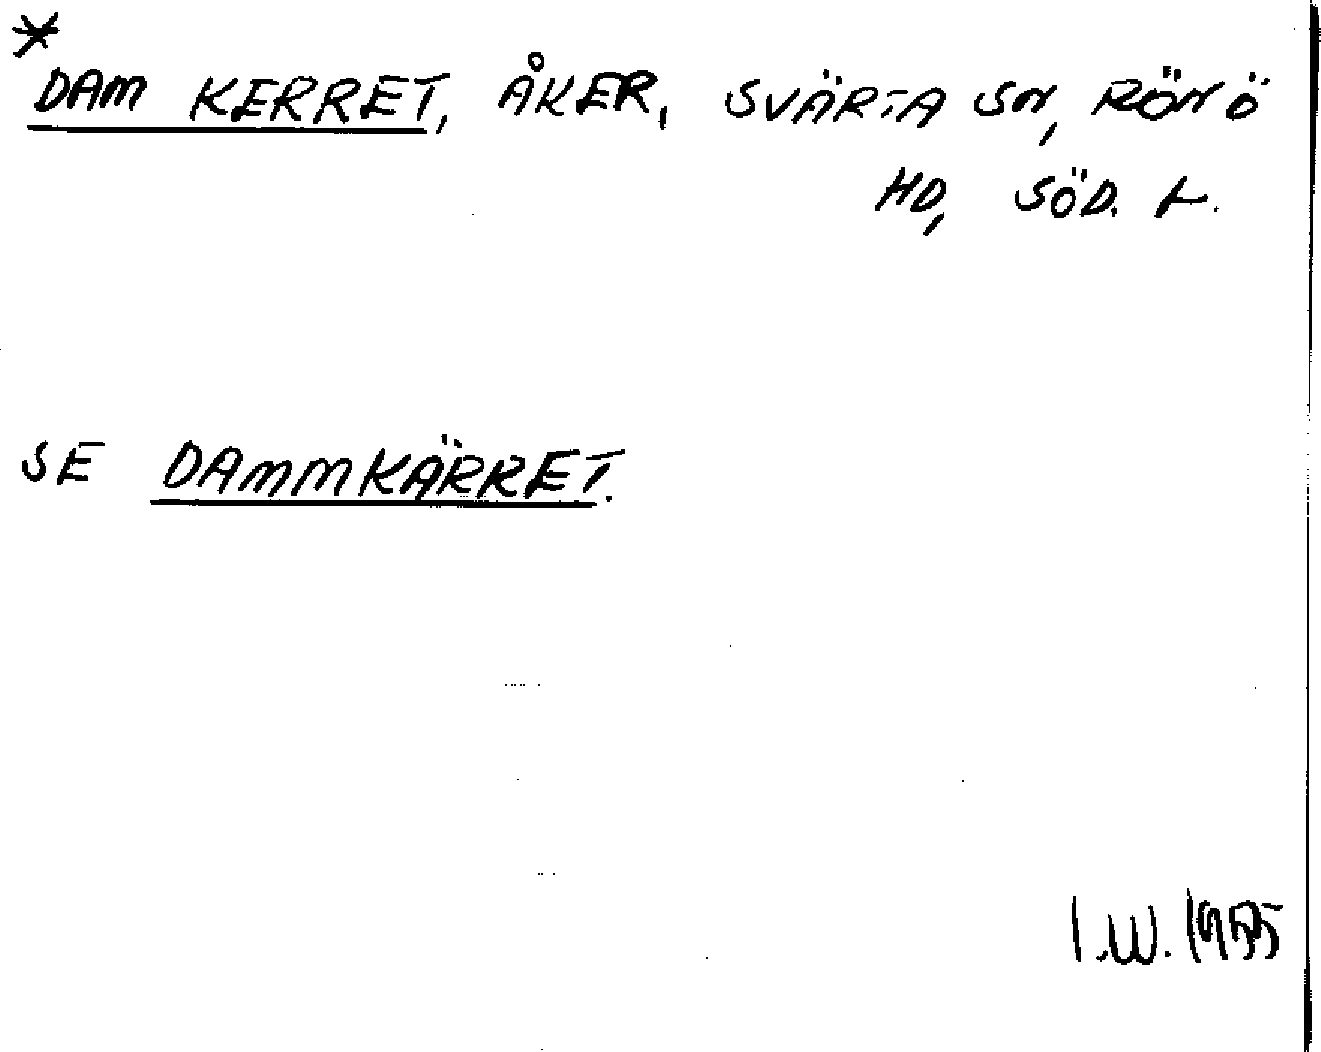 *
DAM KERRET, ÅKER, SVÄRTA SN, RÖNÖ
HD, SÖD. L.
SE DAMMKÄRRET.
I.W. 1955